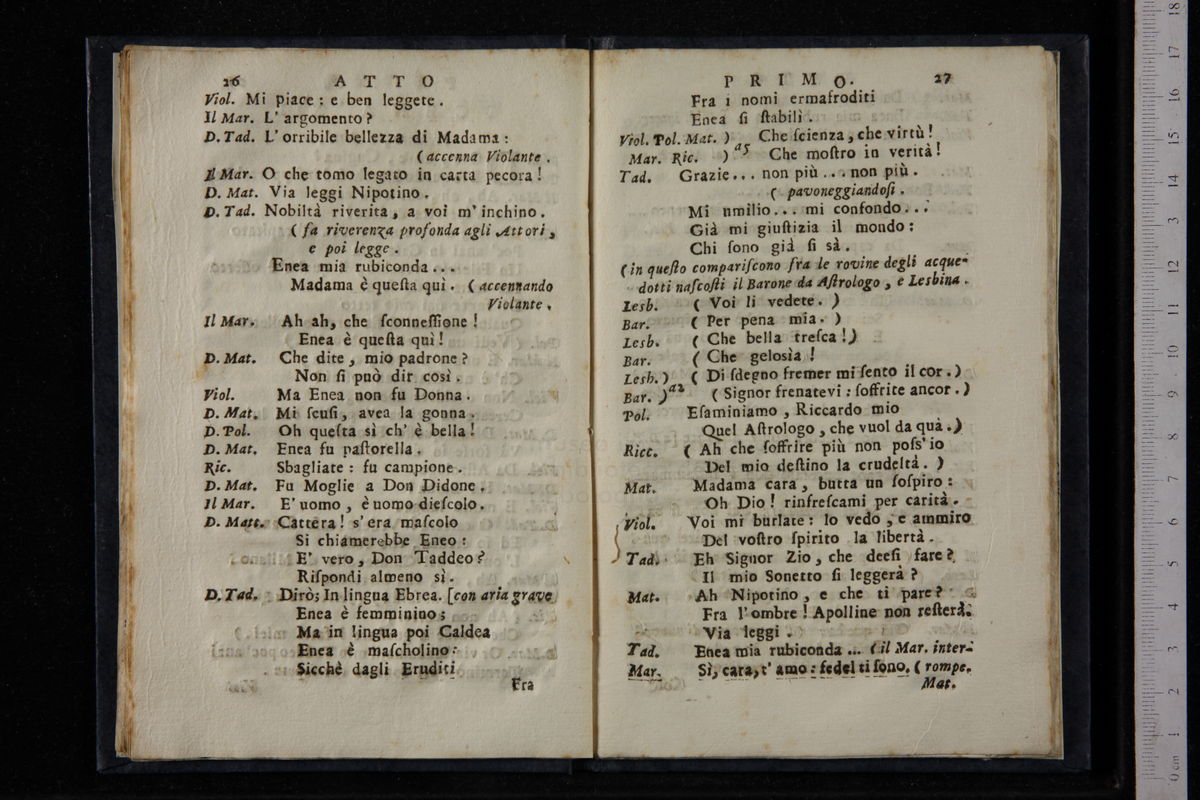 26 ATTO
Viol. Mi piace : e ben leggete .
Il Mar. L' argomento ?
D. Tad. L' orribile bellezza di Madama :
( accenna Violante .
Il Mar. O che tomo legato in carta pecora !
D. Mat. Via leggi Nipotino .
D. Tad. Nobiltà riverita , a voi m' inchino .
( fa riverenza profonda agli Attori ,
e poi legge .
Enea mia rubiconda ...
Madama è queſta quì . ( accennando
Violante .
Il Mar. Ah ah, che ſconneſſione !
Enea è queſta quì !
D. Mat. Che dite , mio padrone ?
Non ſi può dir così .
Viol. Ma Enea non fu Donna .
D. Mat. Mi ſcuſi , avea la gonna .
D. Pol. Oh queſta sì ch' è bella !
D. Mat. Enea fu paſtorella .
Ric. Sbagliate : fu campione .
D. Mat. Fu Moglie a Don Didone .
Il Mar. E' uomo , è uomo dieſcolo .
D. Matt. Cattera ! s' era maſcolo
Si chiamerebbe Eneo :
E' vero , Don Taddeo ?
Riſpondi almeno sì .
D. Tad. Dirò; In lingua Ebrea. [con aria grave
Enea è femminino ;
Ma in lingua poi Caldea
Enea è maſcholino :
Sicchè dagli Eruditi
Fra
PRIMO. 27
Fra i nomi ermafroditi
Enea ſi ſtabilì .
Viol. Pol. Mat. ) Che ſcienza , che virtù !
Mar. Ric. ) a5 Che moſtro in verità !
Tad. Grazie ... non più ... non più .
( pavoneggiandoſi .
Mi umilio ... mi confondo ...
Già mi giuſtizia il mondo :
Chi ſono già ſi sà .
( in queſto compariſcono fra le rovine degli acque-
dotti naſcoſti il Barone da Aſtrologo , e Lesbina .
Lesb. ( Voi li vedete . )
Bar. ( Per pena mia . )
Lesb. ( Che bella treſca ! )
Bar. ( Che gelosìa !
Lesb. ) ( Di ſdegno fremer mi ſento il cor . )
Bar. ) a2 ( Signor frenatevi : ſoffrite ancor . )
Pol. Eſaminiamo , Riccardo mio
Quel Aſtrologo , che vuol da quà . )
Ricc. ( Ah che ſoffrire più non poſs' io
Del mio deſtino la crudeltà . )
Mat. Madama cara , butta un ſoſpiro :
Oh Dio ! rinfreſcami per carità .
Viol. Voi mi burlate : lo vedo , e ammiro
Del voſtro ſpirito la libertà .
Tad. Eh Signor Zio , che deeſi fare ?
Il mio Sonetto ſi leggerà ?
Mat. Ah Nipotino , e che ti pare ?
Fra l' ombre ! Apolline non reſterà.
Via leggi .
Tad. Enea mia rubiconda ... ( il Mar. inter-
Mar. Sì, cara, t' amo : fedel ti ſono. ( rompe.
Mat.
0 cm 1 2 3 4 5 6 7 8 9 10 11 12 13 14 15 16 17 18